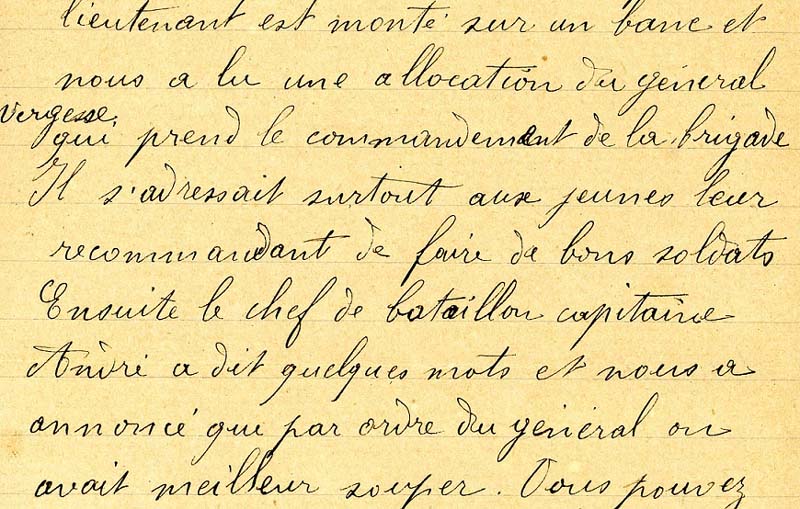 lieutenant est monté sur un banc et
nous a lu une allocation du général
Vergesse
qui prend le commandement de la brigade
Il s'adressait surtout aux jeunes leur
recommandant de faire de bons soldats
Ensuite le chef de bataillon capitaine
André a dit quelques mots et nous a
annoncé que par ordre du général on
avait meilleur souper. Vous pouvez